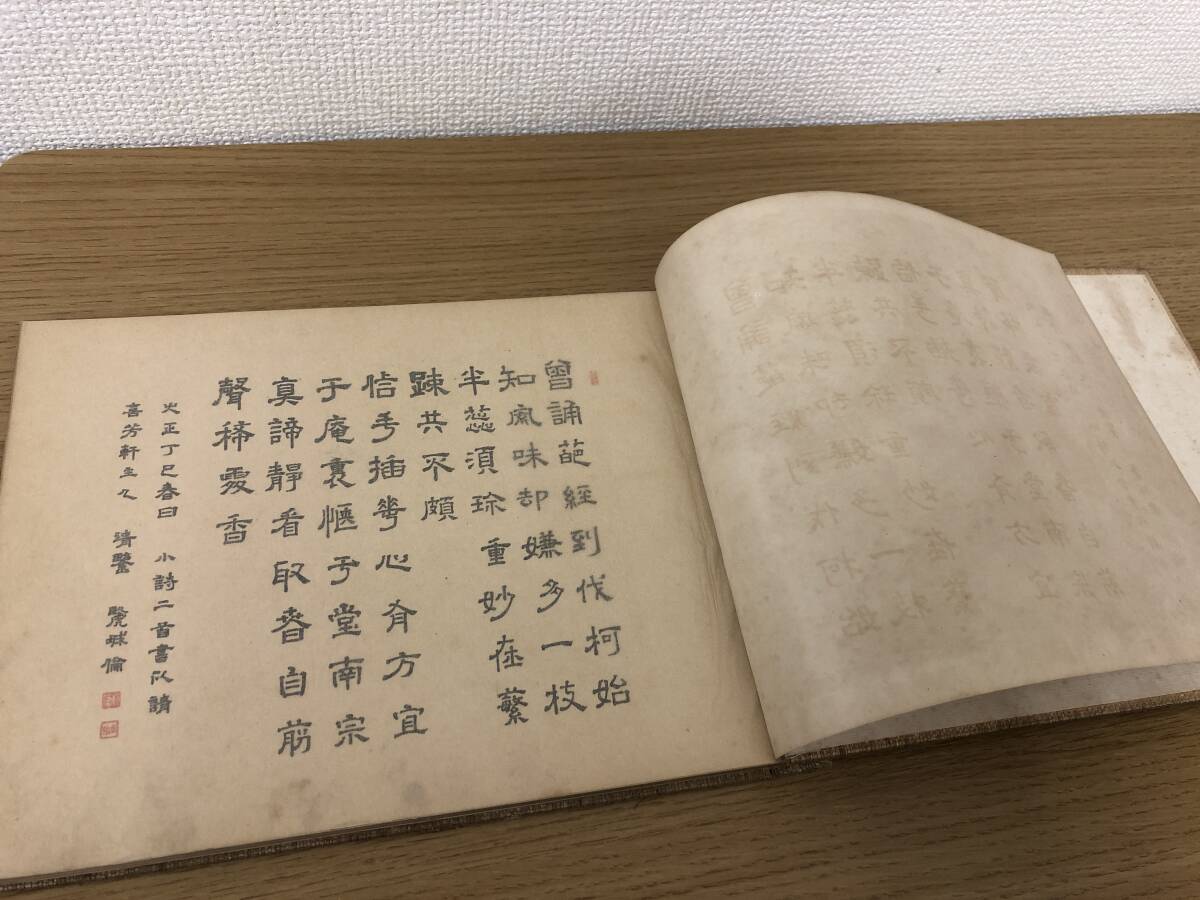 曾誦葩經到伐柯始
知風味却嫌多一枝
半蕊須珎重妙在蘩
疎共不頗
信手插花心有方宜
于庵裏愜于堂南宗
真諦静看取春自前
聲稀處香
大正丁巳春日 小詩二首書以請
喜芳軒主人 清鑒